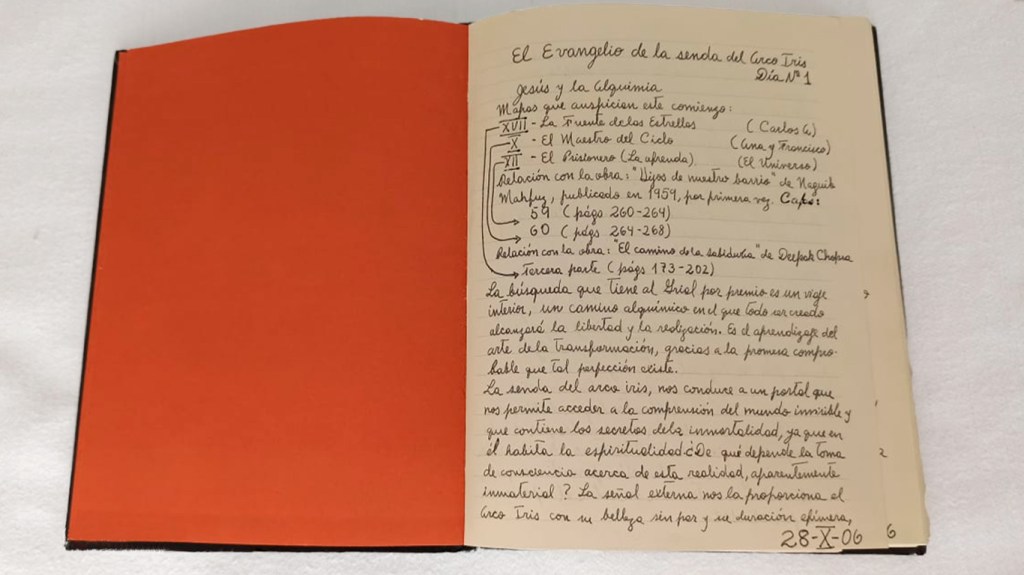 El Evangelio de la senda del Arco Iris
Día Nº 1
Jesús y la Alquimia
Mapas que auspician este comienzo:
XVII - La Fuente de las Estrellas (Carlos G.)
X - El Maestro del Ciclo (Ana y Francisco)
XII - El Prisionero (La ofrenda) (El Universo)
Relación con la obra: "Hijos de nuestro barrio" de Naguib
Mahfuz, publicada en 1959, por primera vez. Caps:
59 (págs 260-264)
60 (págs 264-268)
Relación con la obra: "El camino de la sabiduría" de Deepak Chopra
Tercera parte (págs 173-202)
La búsqueda que tiene al Grial por premio es un viaje
interior, un camino alquímico en el que todo ser creado
alcanzará la libertad y la realización. Es el aprendizaje del
arte de la transformación, gracias a la promesa compro-
bable que tal perfección existe.
La senda del arco iris, nos conduce a un portal que
nos permite acceder a la comprensión del mundo invisible y
que contiene los secretos de la inmortalidad, ya que en
él habita la espiritualidad ¿De qué depende la toma
de consciencia acerca de esta realidad, aparentemente
inmaterial? La señal externa nos la proporciona el
Arco Iris con su belleza sin par y su duración efímera,
28-X-06 6